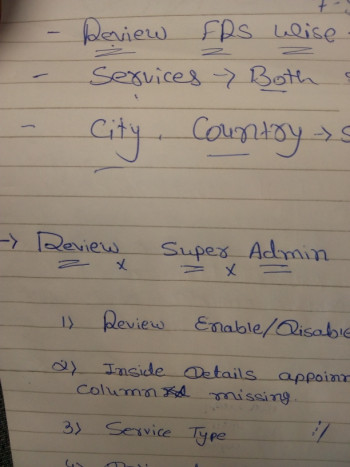 - Review FDS wise
- Services → Both
- City, Country →
→ Review Super Admin
x x
1) Review Enable/Disable
2) Inside Details appoinm
column missing.
3) Service Type